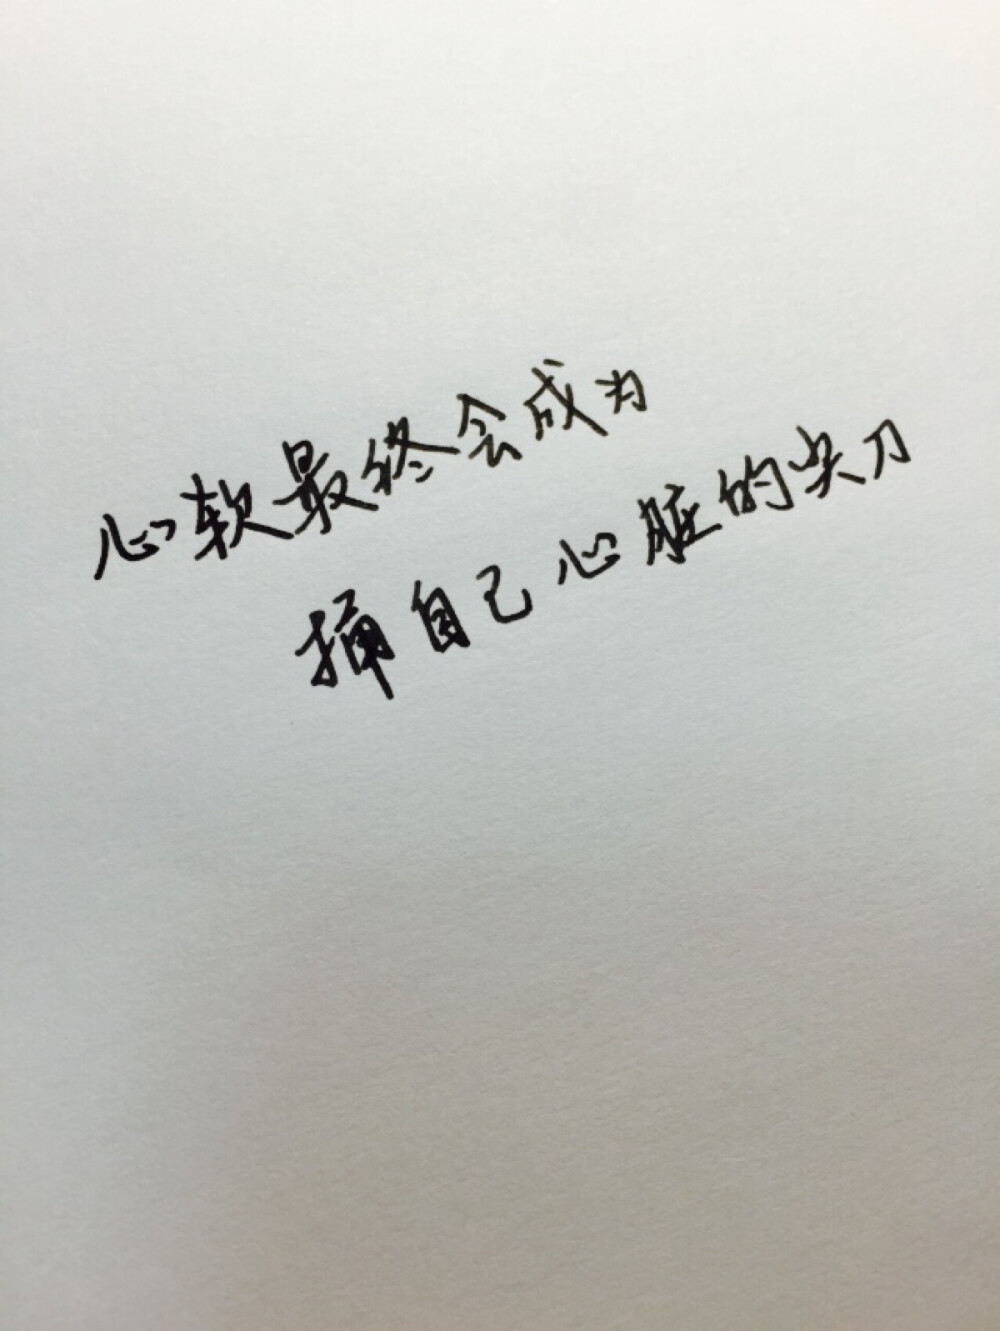 心软最终会成为
捅自己心脏的尖刀